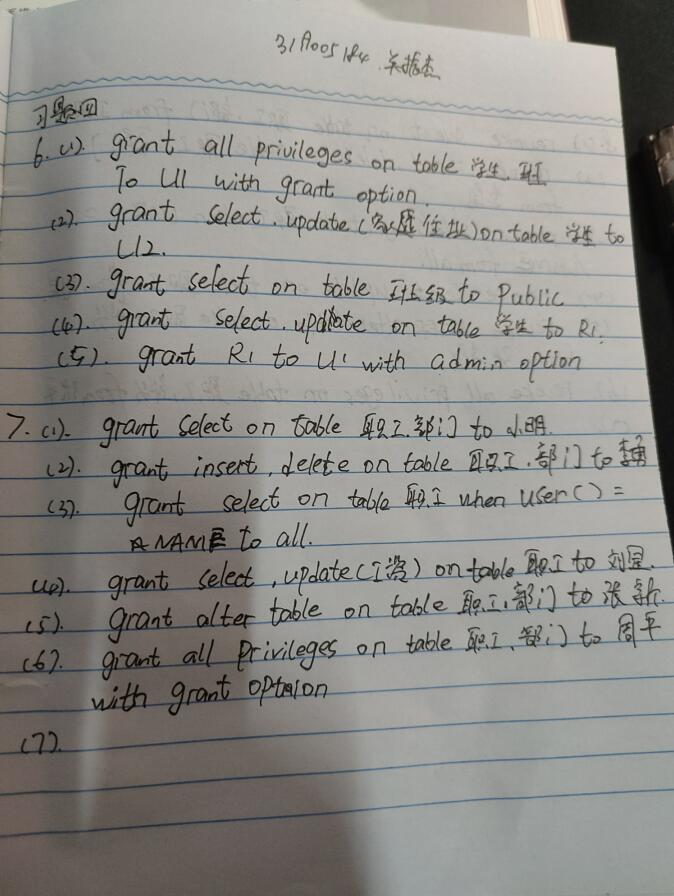 习题四
6.(1). grant all privileges on table 学生.班
To U1 with grant option.
(2). grant select.update(家庭住址) on table 学生 to
U2.
(3). grant select on table 班级 to Public
(4). grant select.update on table 学生 to R1.
(5). grant R1 to U1 with admin option
7.(1). grant select on table 职工.部门 to 小明.
(2). grant insert,delete on table 职工.部门 to 李勇
(3). grant select on table 职工 when user() =
NAME to all.
(4). grant select,update(工资) on table 职工 to 刘星.
(5). grant alter table on table 职工.部门 to 张新.
(6). grant all privileges on table 职工、部门 to 周平
with grant option
(7).